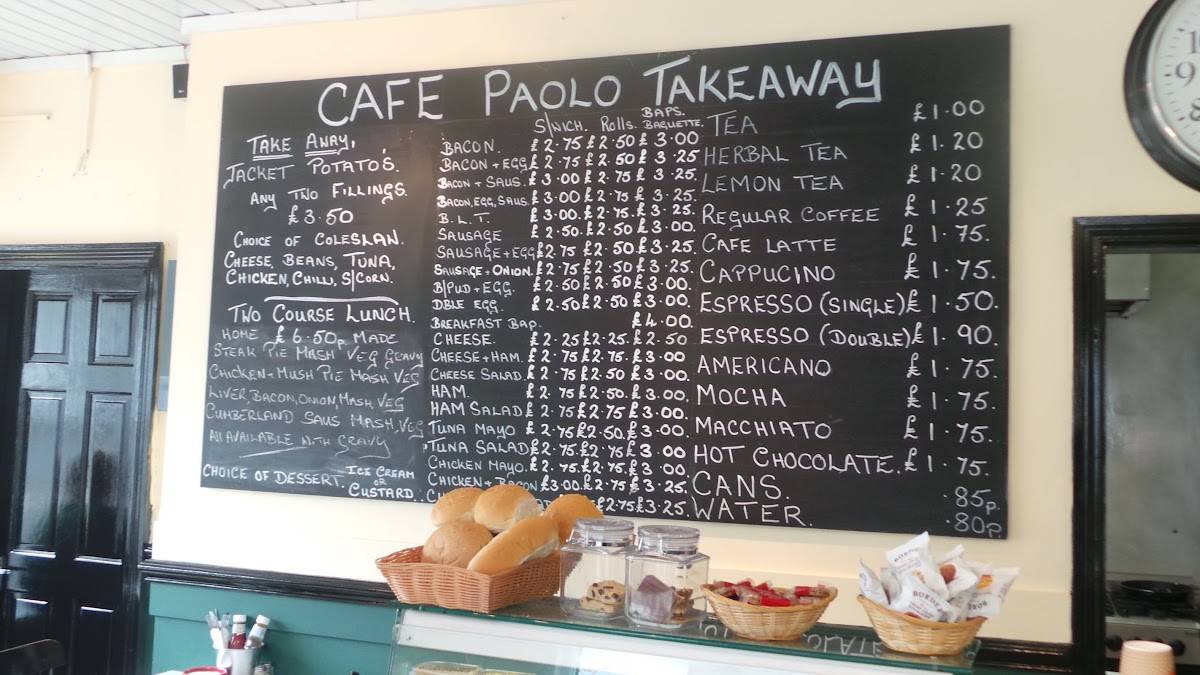 CAFE PAOLO TAKEAWAY
TAKE AWAY.
JACKET POTATOS.
ANY TWO FILLINGS.
£3.50
CHOICE OF COLESLAN.
CHEESE, BEANS, TUNA,
CHICKEN, CHILLI, S/CORN.
TWO COURSE LUNCH.
HOME £6.50p MADE
STEAK PIE MASH VEG GRAVY
CHICKEN + MUSH PIE MASH VEG
LIVER, BACON, ONION, MASH, VEG
CUMBERLAND SAUS MASH, VEG
All AVAILABLE WITH GRAVY
CHOICE OF DESSERT. ICE CREAM
OR
CUSTARD.
BAPS.
S/WICH. Rolls. BAGUETTE.
BACON. £2.75 £2.50 £3.00
BACON + EGG £2.75 £2.50 £3.25
BACON + SAUS. £3.00 £2.75 £3.25.
BACON, EGG, SAUS. £3.00 £2.75 £3.25.
B.L.T. £3.00. £2.75. £3.25.
SAUSAGE £2.50. £2.50. £3.00.
SAUSAGE + EGG £2.75 £2.50 £3.25.
SAUSAGE + ONION. £2.75 £2.50 £3.25.
B/PUD + EGG. £2.50 £2.50 £3.00.
DBLE EGG. £2.50 £2.50 £3.00.
BREAKFAST BAP. £4.00.
CHEESE. £2.25 £2.25. £2.50
CHEESE + HAM. £2.75 £2.75. £3.00
CHEESE SALAD. £2.75 £2.50 £3.00.
HAM. £2.75 £2.50. £3.00.
HAM SALAD £2.75 £2.75 £3.00.
TUNA MAYO £2.75 £2.50. £3.00.
TUNA SALAD £2.75. £2.75 £3.00
CHICKEN MAYO. £2.75. £2.75. £3.00
CHICKEN + BACON £3.00 £2.75 £3.25.
£2.75 £3.25.
TEA £1.00
HERBAL TEA £1.20
LEMON TEA £1.20
REGULAR COFFEE £1.25
CAFE LATTE £1.75.
CAPPUCINO £1.75.
ESPRESSO (SINGLE) £1.50.
ESPRESSO (DOUBLE) £1.90.
AMERICANO £1.75.
MOCHA £1.75.
MACCHIATO £1.75.
HOT CHOCOLATE. £1.75.
CANS. .85p.
WATER. .80p.